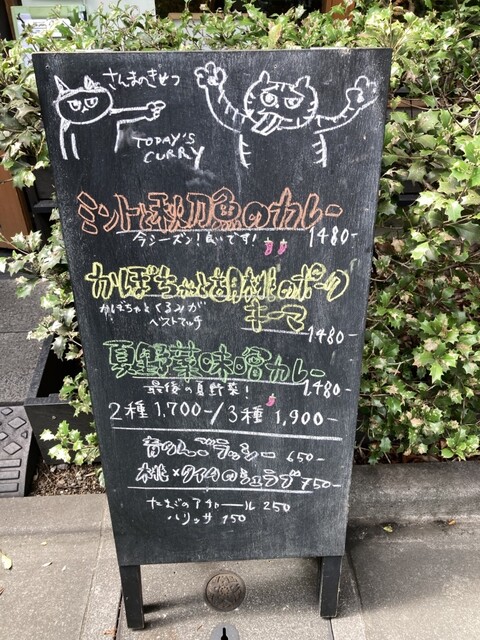 さんまのきせつ
TODAY'S
CURRY
ミントと秋刀魚のカレー
今シーズン!良いです! 1480-
かぼちゃと胡桃のポーク
キーマ
かぼちゃとくるみが
ベストマッチ
1480-
夏野菜味噌カレー
最後の夏野菜! 1480-
2種 1,700-/3種 1,900-
青りんごラッシー 650-
桃×ライムのシェラブ 750-
たまごのアチャール 250
ハリッサ 150